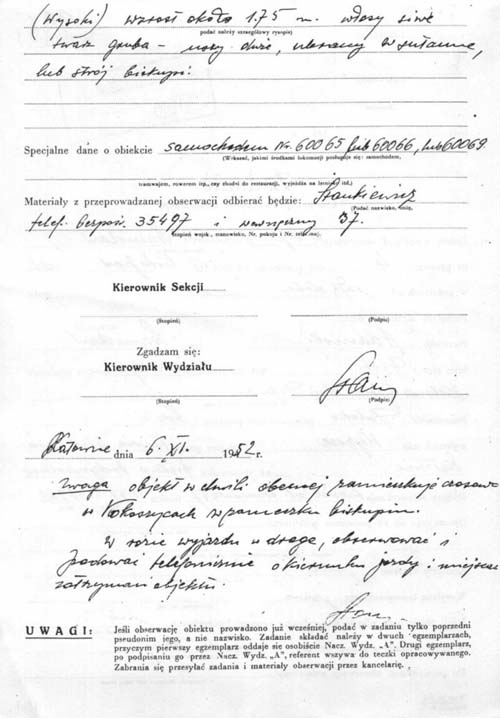 (Wysoki) wzrost około 1.75 m. włosy siwe
podać należy szczegółowy rysopis)
twarz gruba - uszy duże, ubrany w sutannę,
lub strój biskupi.
Specjalne dane o obiekcie samochodem Nr. 60065 lub 60066, lub 60069
(Wskazać, jakimi środkami lokomocji posługuje się: samochodem,
tramwajem, rowerem itp., czy chodzi do restauracji, wyjeżdża na letnisko itd.)
Materiały z przeprowadzanej obserwacji odbierać będzie: Stankiewicz
(Podać nazwisko, imię,
telef. bezpoś. 35497 i wewnętrzny 37.
stopień wojsk., stanowisko, Nr. pokoju i Nr. telefonu).
Kierownik Sekcji
(Stopień) (Podpis)
Zgadzam się:
Kierownik Wydziału
(Stopień) (Podpis)
Katowice dnia 6. XI. 1952 r.
Uwaga objekt w chwili obecnej zamieszkuje czasowo
w Kokoszycach w pameczku biskupim.
W razie wyjazdu w drogę, obserwować i
podawać telefonicznie o kierunku jazdy i miejscu
zatrzymań objektu.
UWAGI: Jeśli obserwację obiektu prowadzono już wcześniej, podać w zadaniu tylko poprzedni
pseudonim jego, a nie nazwisko. Zadanie składać należy w dwuch egzemplarzach,
przyczym pierwszy egzemplarz oddaje się osobiście Nacz. Wydz. „A". Drugi egzemplarz,
po podpisaniu go przez Nacz. Wydz. „A", referent wszywa do teczki opracowywanego.
Zabrania się przesyłać zadania i materiały obserwacji przez kancelarię.